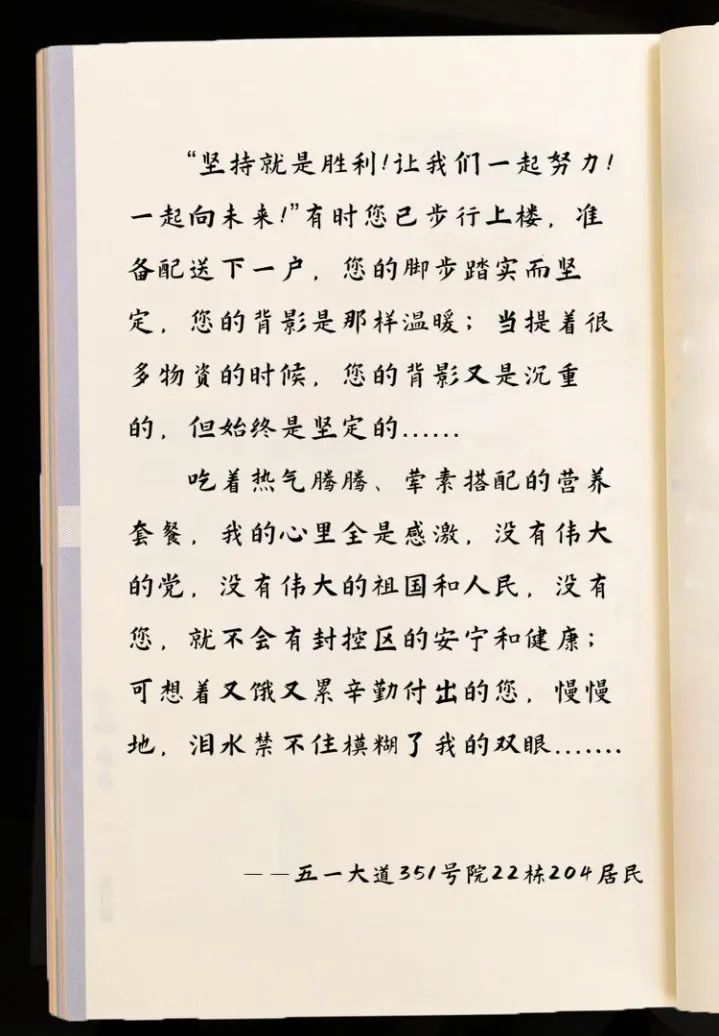 “坚持就是胜利！让我们一起努力！
一起向未来！”有时您已步行上楼，准
备配送下一户，您的脚步踏实而坚
定，您的背影是那样温暖；当提着很
多物資的时候，您的背影又是沉重
的，但始终是坚定的……
吃着热气腾腾、荤素搭配的营养
套餐，我的心里全是感激，没有伟大
的党，没有伟大的祖国和人民，没有
您，就不会有封控区的安宁和健康；
可想着又饿又累辛勤付出的您，慢慢
地，泪水禁不住模糊了我的双眼…….
——五一大道351号院22栋204居民